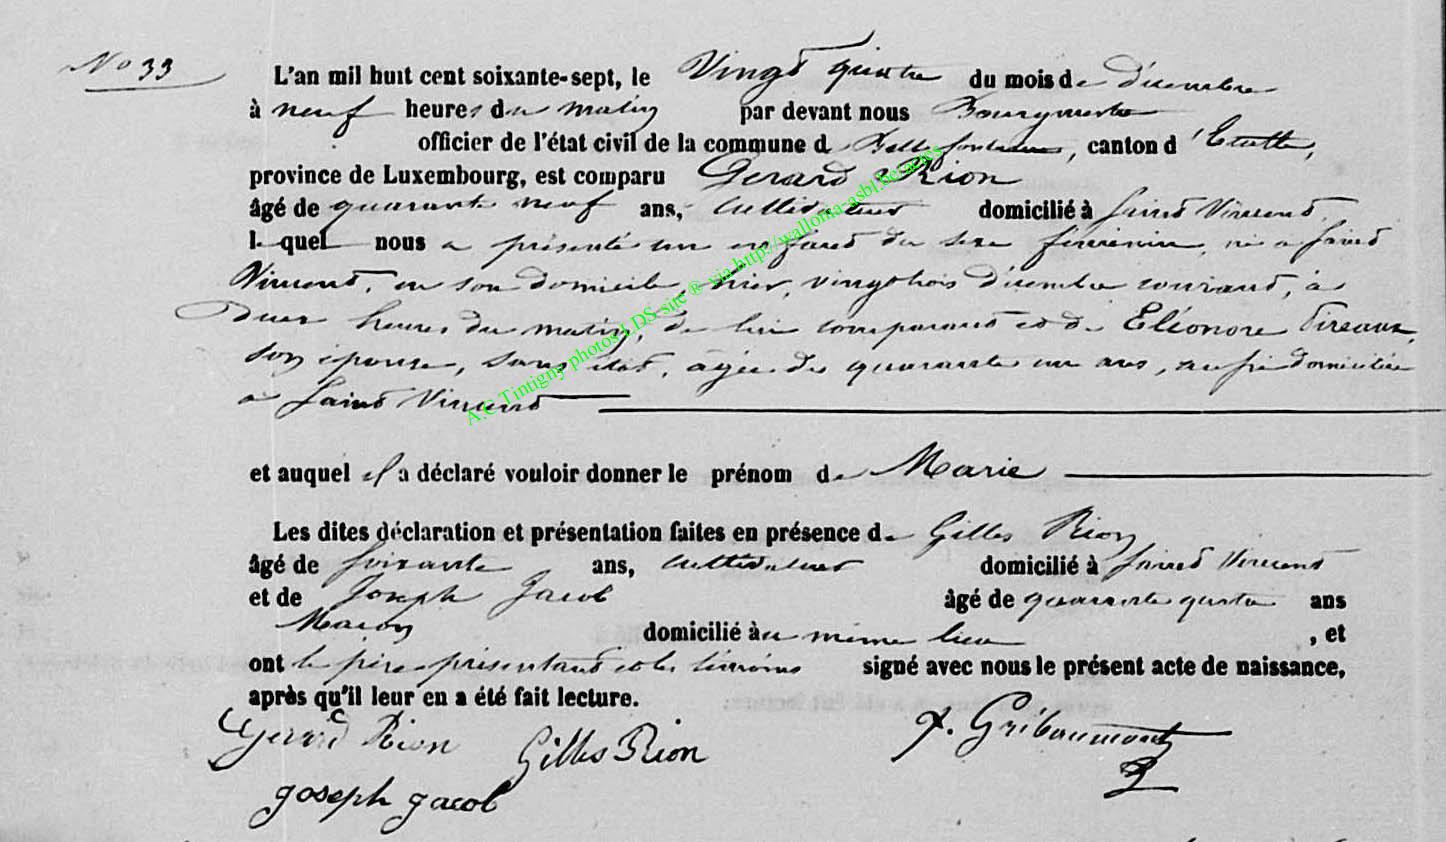 No 33
L'an mil huit cent soixante-sept, le Vingt quatre du mois de décembre
à neuf heures du matin par devant nous Bourgmestre
officier de l'état civil de la commune de Bellefontaine, canton d'Etalle,
province de Luxembourg, est comparu Gerard Rion
âgé de quarante neuf ans, cultivateur domicilié à Saint Vincent,
lequel nous a présenté un enfant du sexe féminin, né a Saint
Vincent, en son domicile, hier, vingt trois décembre courant, à
Deux heures du matin, de lui comparant et de Eléonore Pireaux,
son épouse, sans état, agée de quarante un ans, aussi domiciliée
a Saint Vincent
et auquel il a déclaré vouloir donner le prénom de Marie
Les dites déclaration et présentation faites en présence de Gilles Rion
âgé de soixante ans, cultivateur domicilié à Saint Vincent
et de Joseph Jacob âgé de quarante quatre ans
Maçon domicilié au même lieu , et
ont le père présentant et les témoins signé avec nous le présent acte de naissance,
après qu'il leur en a été fait lecture.
Gerard Rion Gilles Rion F. Gribaumont
Joseph Jacob
A.C Tintigny photos LDS site ® via http://wallonia-asbl.be/actes